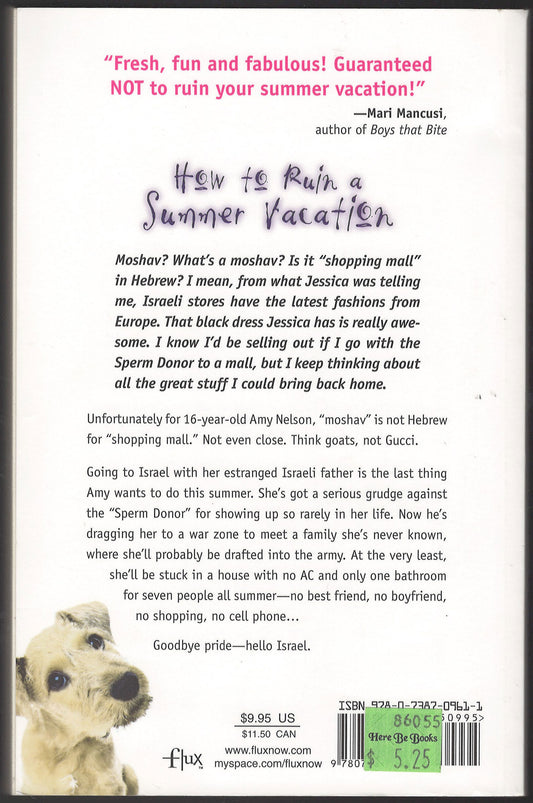 “Fresh, fun and fabulous! Guaranteed
NOT to ruin your summer vacation!”
—Mari Mancusi,
author of Boys that Bite
How to Ruin a
Summer Vacation
Moshav? What’s a moshav? Is it “shopping mall”
in Hebrew? I mean, from what Jessica was telling
me, Israeli stores have the latest fashions from
Europe. That black dress Jessica has is really awe-
some. I know I’d be selling out if I go with the
Sperm Donor to a mall, but I keep thinking about
all the great stuff I could bring back home.
Unfortunately for 16-year-old Amy Nelson, “moshav” is not Hebrew
for “shopping mall.” Not even close. Think goats, not Gucci.
Going to Israel with her estranged Israeli father is the last thing
Amy wants to do this summer. She’s got a serious grudge against
the “Sperm Donor” for showing up so rarely in her life. Now he’s
dragging her to a war zone to meet a family she’s never known,
where she’ll probably be drafted into the army. At the very least,
she’ll be stuck in a house with no AC and only one bathroom
for seven people all summer—no best friend, no boyfriend,
no shopping, no cell phone...
Goodbye pride—hello Israel.
ISBN 978-0-7387-0961-1
$9.95 US
$11.50 CAN
flux™
www.fluxnow.com
myspace.com/fluxnow
86055
Here Be Books
$ 5.25
50995>
9 7807